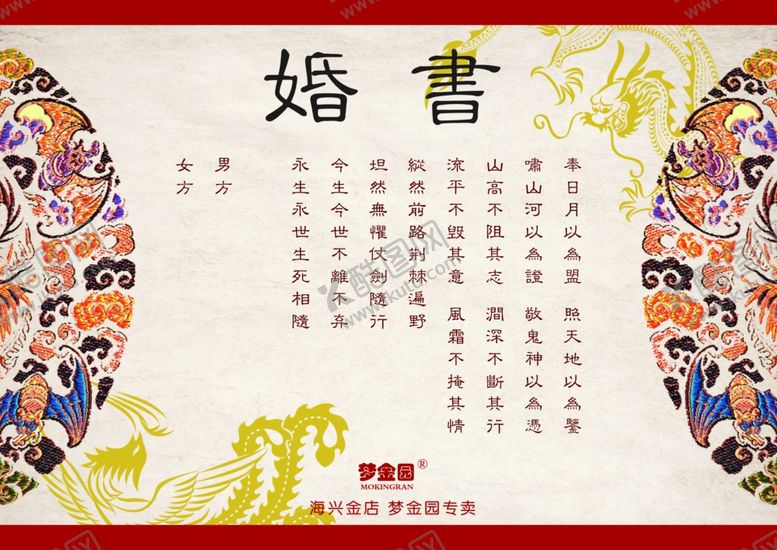 婚書
奉日月以為盟 照天地以為鑒
嘯山河以為證 敬鬼神以為憑
山高不阻其志 澗深不斷其行
流平不毀其意 風霜不掩其情
縱然前路荆棘遍野
坦然無懼仗劍隨行
今生今世不離不弃
永生永世生死相隨
男方
女方
梦金园®
MOKINGRAN
海兴金店 梦金园专卖
酷图网
www.ikutu.com